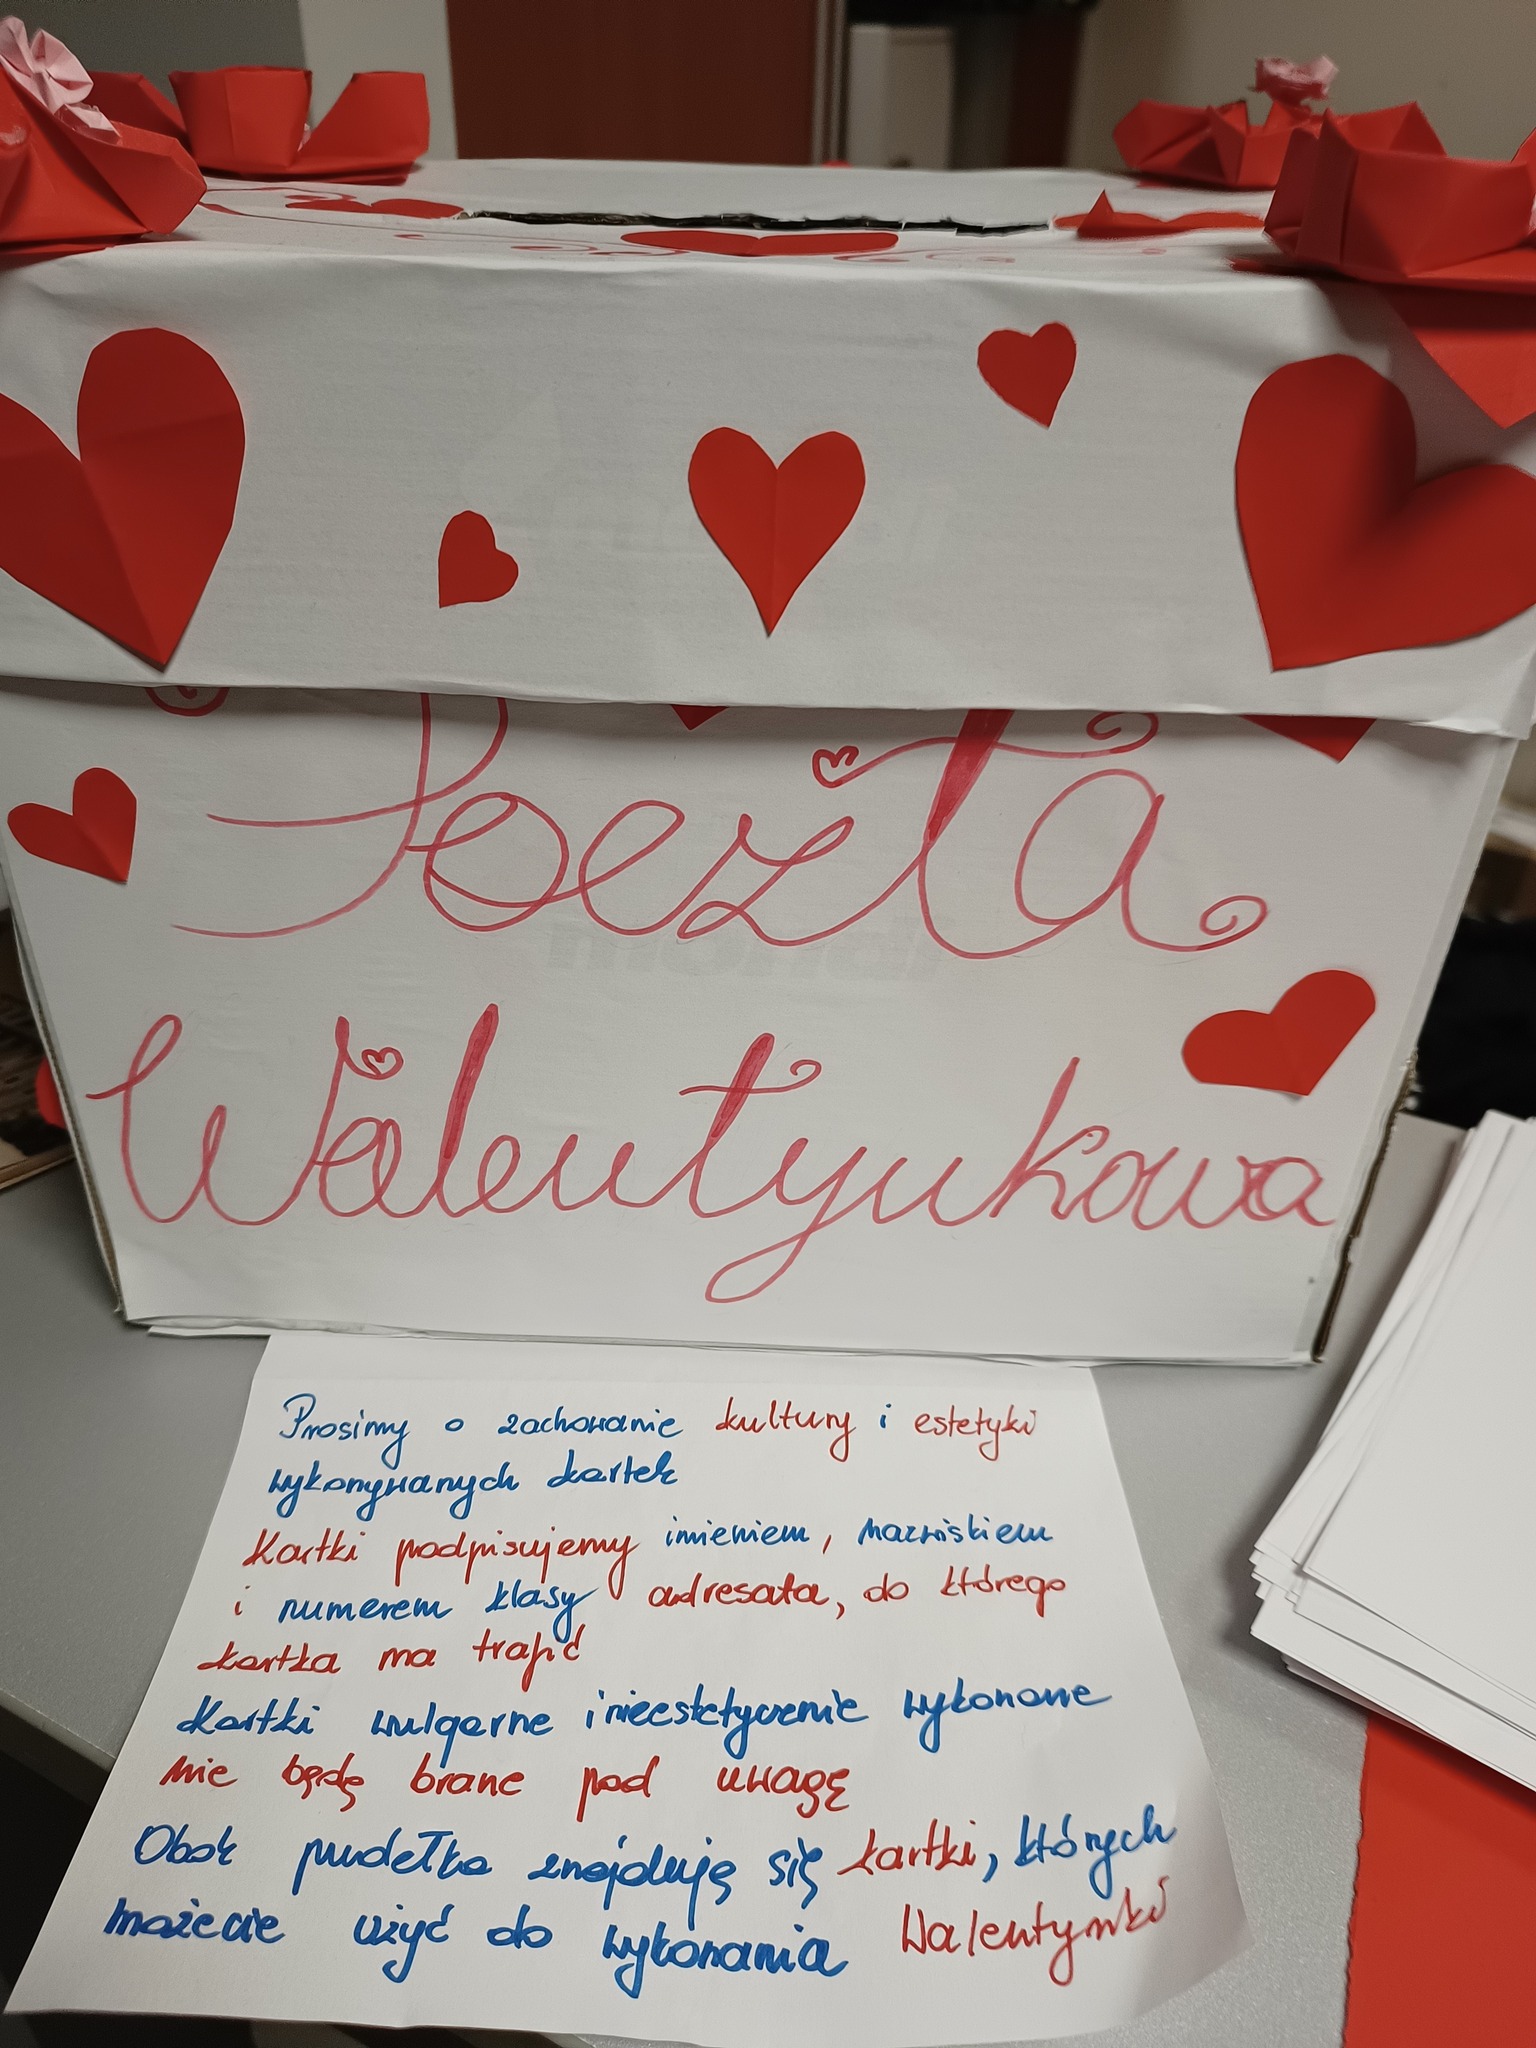 Poczta
Walentynkowa
Prosimy o zachowanie kultury i estetyki
wykonywanych kartek
Kartki podpisujemy imieniem, nazwiskiem
i numerem klasy adresata, do którego
kartka ma trafić
Kartki wulgarne i nieestetycznie wykonane
nie będę brane pod uwagę
Obok pudełka znajduję się kartki, których
możecie użyć do wykonania Walentynki